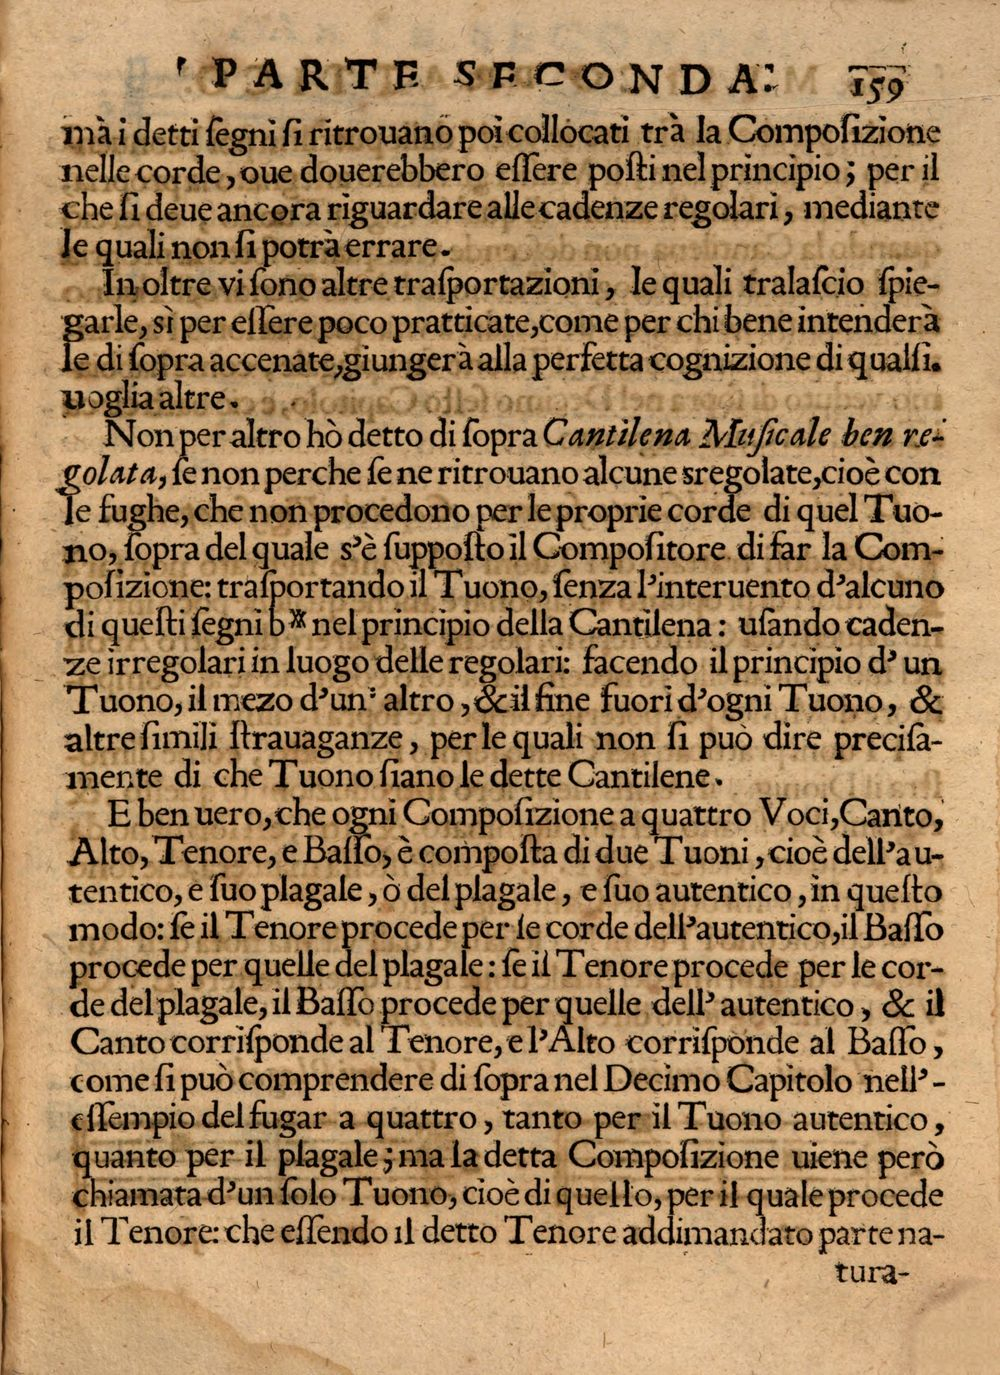 PARTE SECONDA. 159
mà i detti ſegni ſi ritrouano poi collocati trà la Compoſizione
nelle corde, oue douerebbero eſſere poſti nel principio; per il
che ſi deue ancora riguardare alle cadenze regolari, mediante
le quali non ſi potrà errare.
In oltre vi ſono altre traſportazioni, le quali tralaſcio ſpie-
garle, sì per eſſere poco pratticate, come per chi bene intenderà
le di ſopra accenate, giungerà alla perfetta cognizione di qualſi-
uoglia altre.
Non per altro hò detto di ſopra Cantilena Muſicale ben re-
golata, ſe non perche ſe ne ritrouano alcune sregolate, cioè con
le fughe, che non procedono per le proprie corde di quel Tuo-
no, ſopra del quale s'è ſuppoſto il Compoſitore di far la Com-
poſizione: traſportando il Tuono, ſenza l'interuento d'alcuno
di queſti ſegni b※ nel principio della Cantilena: uſando caden-
ze irregolari in luogo delle regolari: facendo il principio d' un
Tuono, il mezo d'un' altro, & il fine fuori d'ogni Tuono, &
altre ſimili ſtrauaganze, per le quali non ſi può dire preciſa-
mente di che Tuono ſiano le dette Cantilene.
E ben uero, che ogni Compoſizione a quattro Voci, Canto,
Alto, Tenore, e Baſſo, è compoſta di due Tuoni, cioè dell'au-
tentico, e ſuo plagale, ò del plagale, e ſuo autentico, in queſto
modo: ſe il Tenore procede per le corde dell'autentico, il Baſſo
procede per quelle del plagale: ſe il Tenore procede per le cor-
de del plagale, il Baſſo procede per quelle dell' autentico, & il
Canto corriſponde al Tenore, e l'Alto corriſponde al Baſſo,
come ſi può comprendere di ſopra nel Decimo Capitolo nell'-
eſſempio del fugar a quattro, tanto per il Tuono autentico,
quanto per il plagale; ma la detta Compoſizione uiene però
chiamata d'un ſolo Tuono, cioè di quello, per il quale procede
il Tenore: che eſſendo il detto Tenore addimandato parte na-
tura-